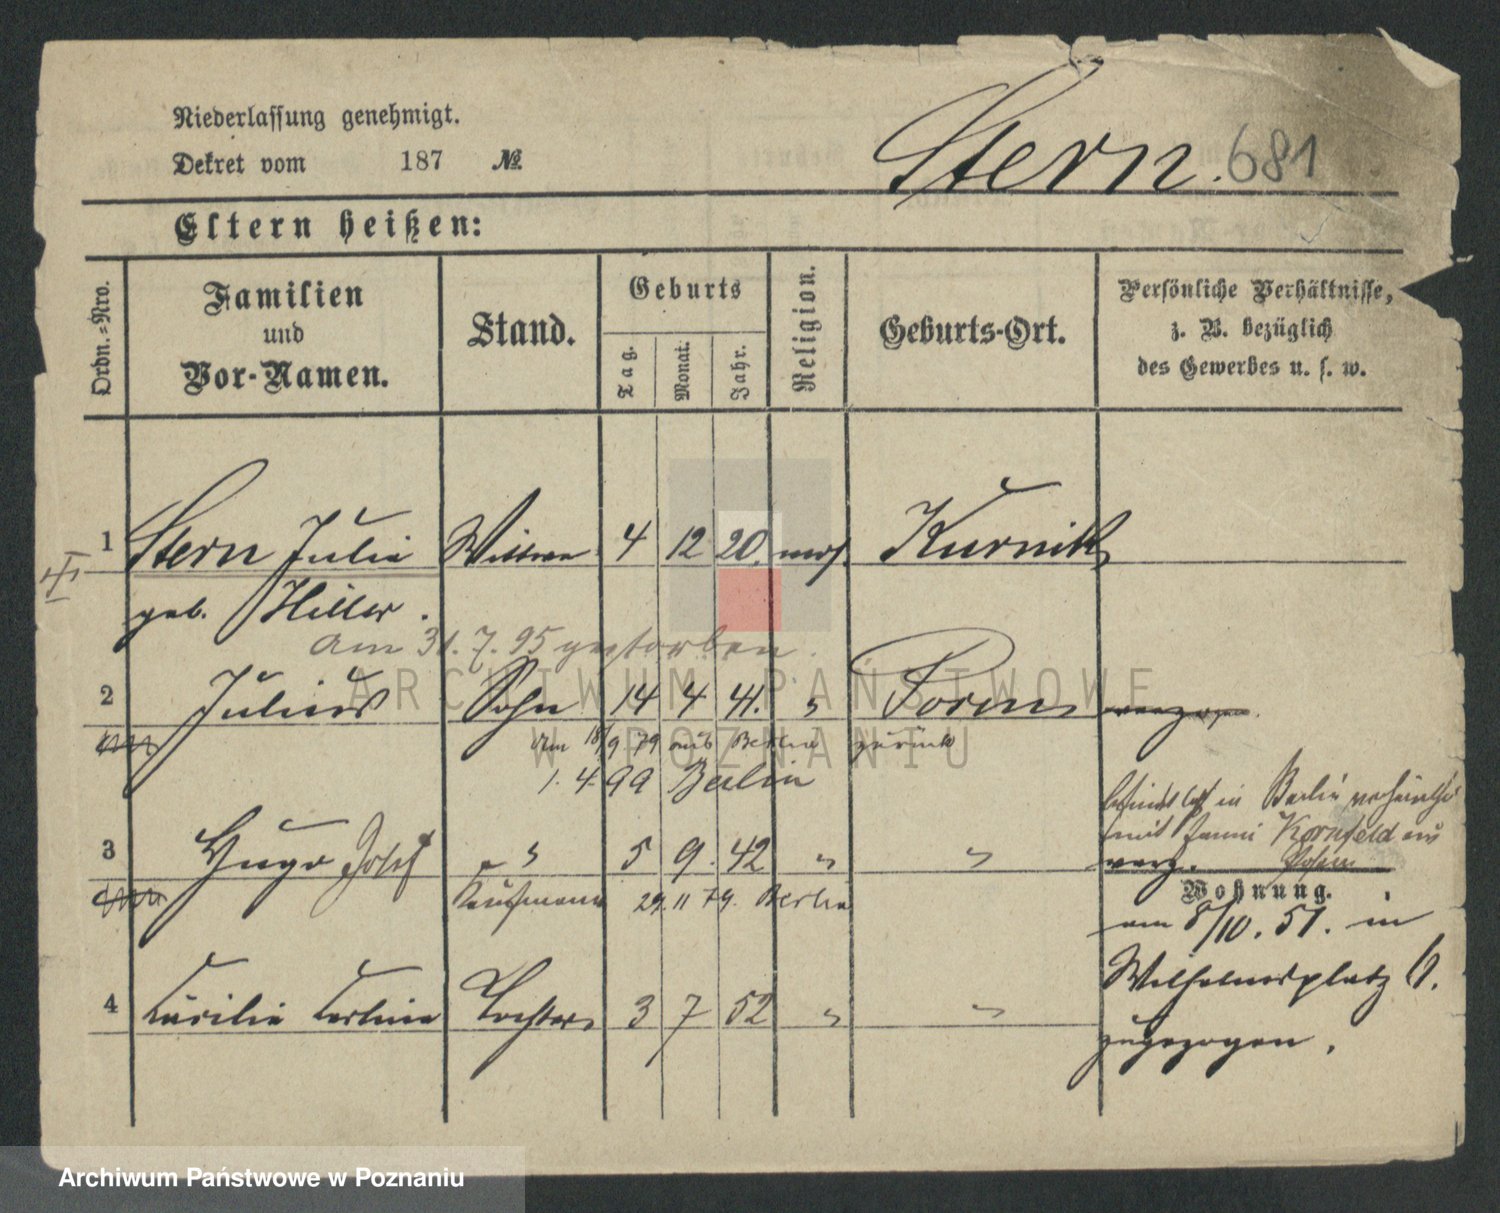 Niederlassung genehmigt.
Dekret vom 187 №
Stern. 681
Eltern heißen:
Ordn.-Nro.
Familien
und
Vor-Namen.
Stand.
Geburts
Tag.
Monat.
Jahr.
Religion.
Geburts-Ort.
Persönliche Verhältnisse,
z. B. bezüglich
des Gewerbes u. s. w.
1 Stern Julie Wittwe 4 12 20. mos. Kurnik
geb. Hiller.
am 31. 7. 95 gestorben.
2 Julius Sohn 14 4 41. " Posen verzogen.
am 18/9 79 aus Berlin zurück
1. 4. 99 Berlin
in Berlin
mit Kornfeld aus
Posen
3 Hugo Josef " 5 9. 42 " " verz.
Kaufmann 29. 11 79. Berlin
Wohnung.
am 8/10. 51. in
4 Cäcilie Tochter 3 7 52 " " Wilhelmsplatz
zugezogen.
ARCHIWUM PAŃSTWOWE
W POZNANIU
Archiwum Państwowe w Poznaniu